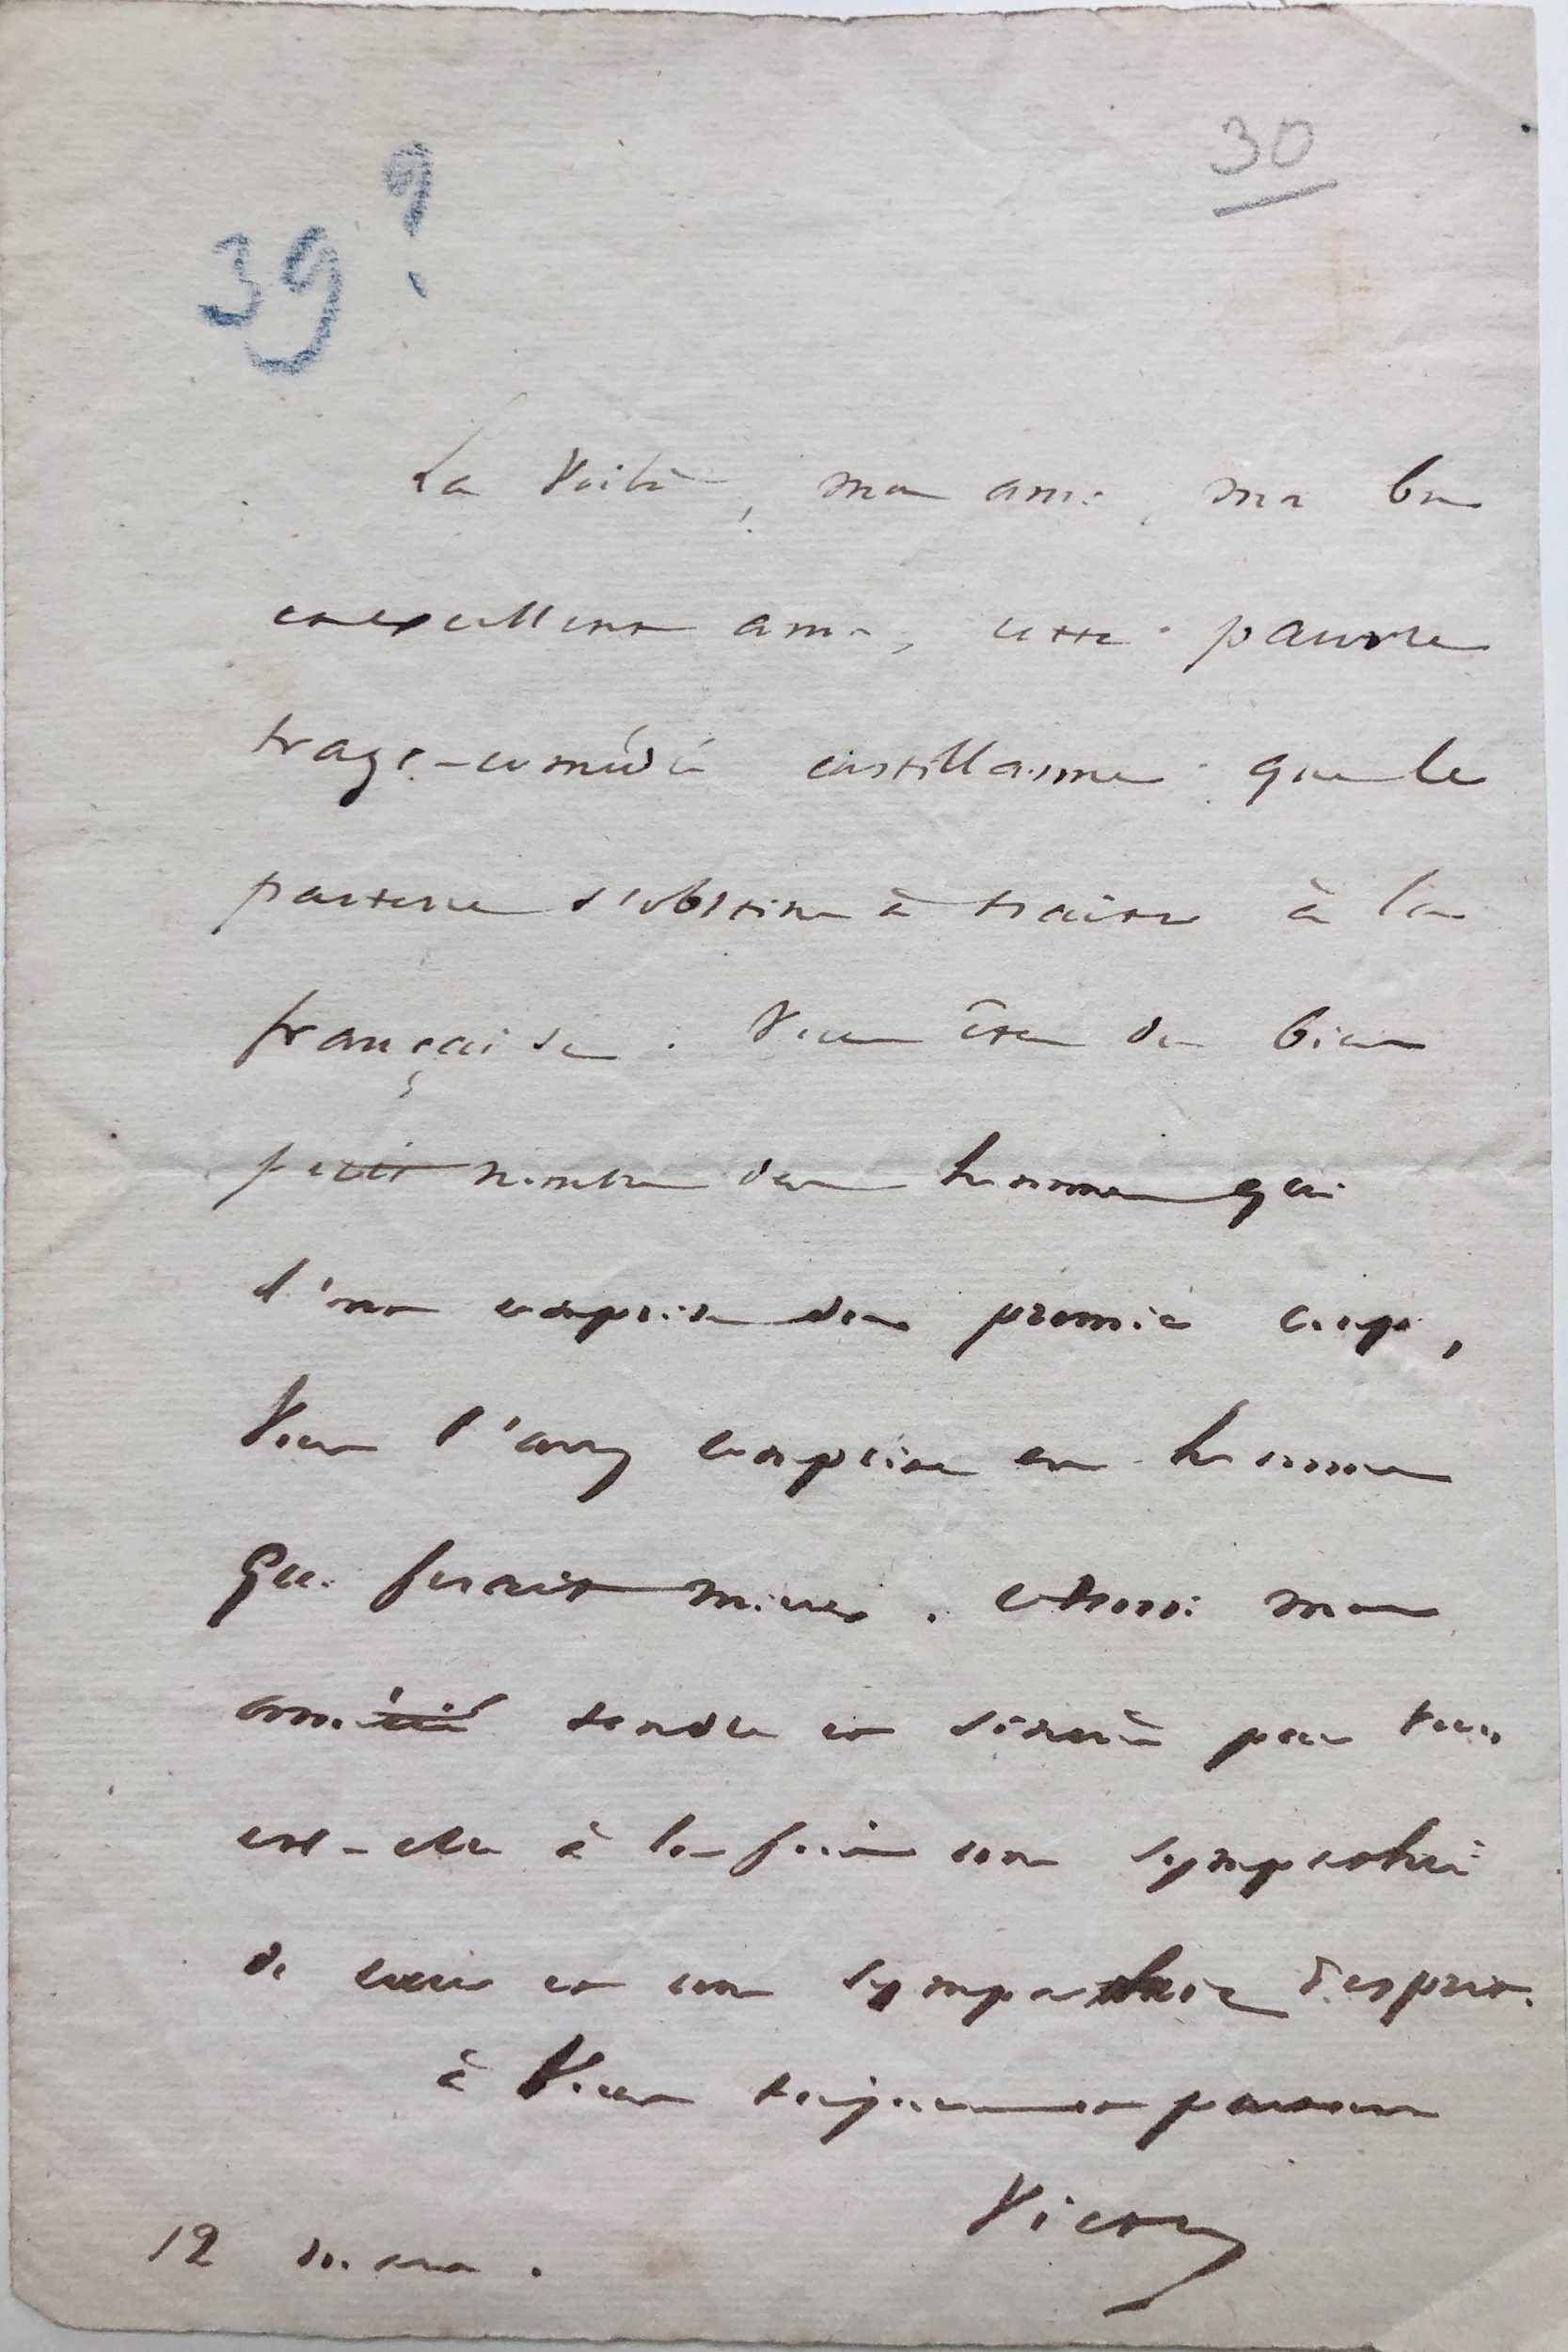 30
39?
La voilà, mon ami, mon bon
et excellent ami, cette pauvre
tragi-comédie castillanne que le
parterre s'obstine à traiter à la
française. Vous êtes du bien
petit nombre des hommes qui
l'ont comprise du premier coup,
vous l'avez comprise en homme
qui ferait mieux. Aussi mon
amitié tendre et sincère pour vous
est-elle à la fois une sympathie
de cœur et une sympathie d'esprit.
à vous toujours et partout
Victor
12 mars.